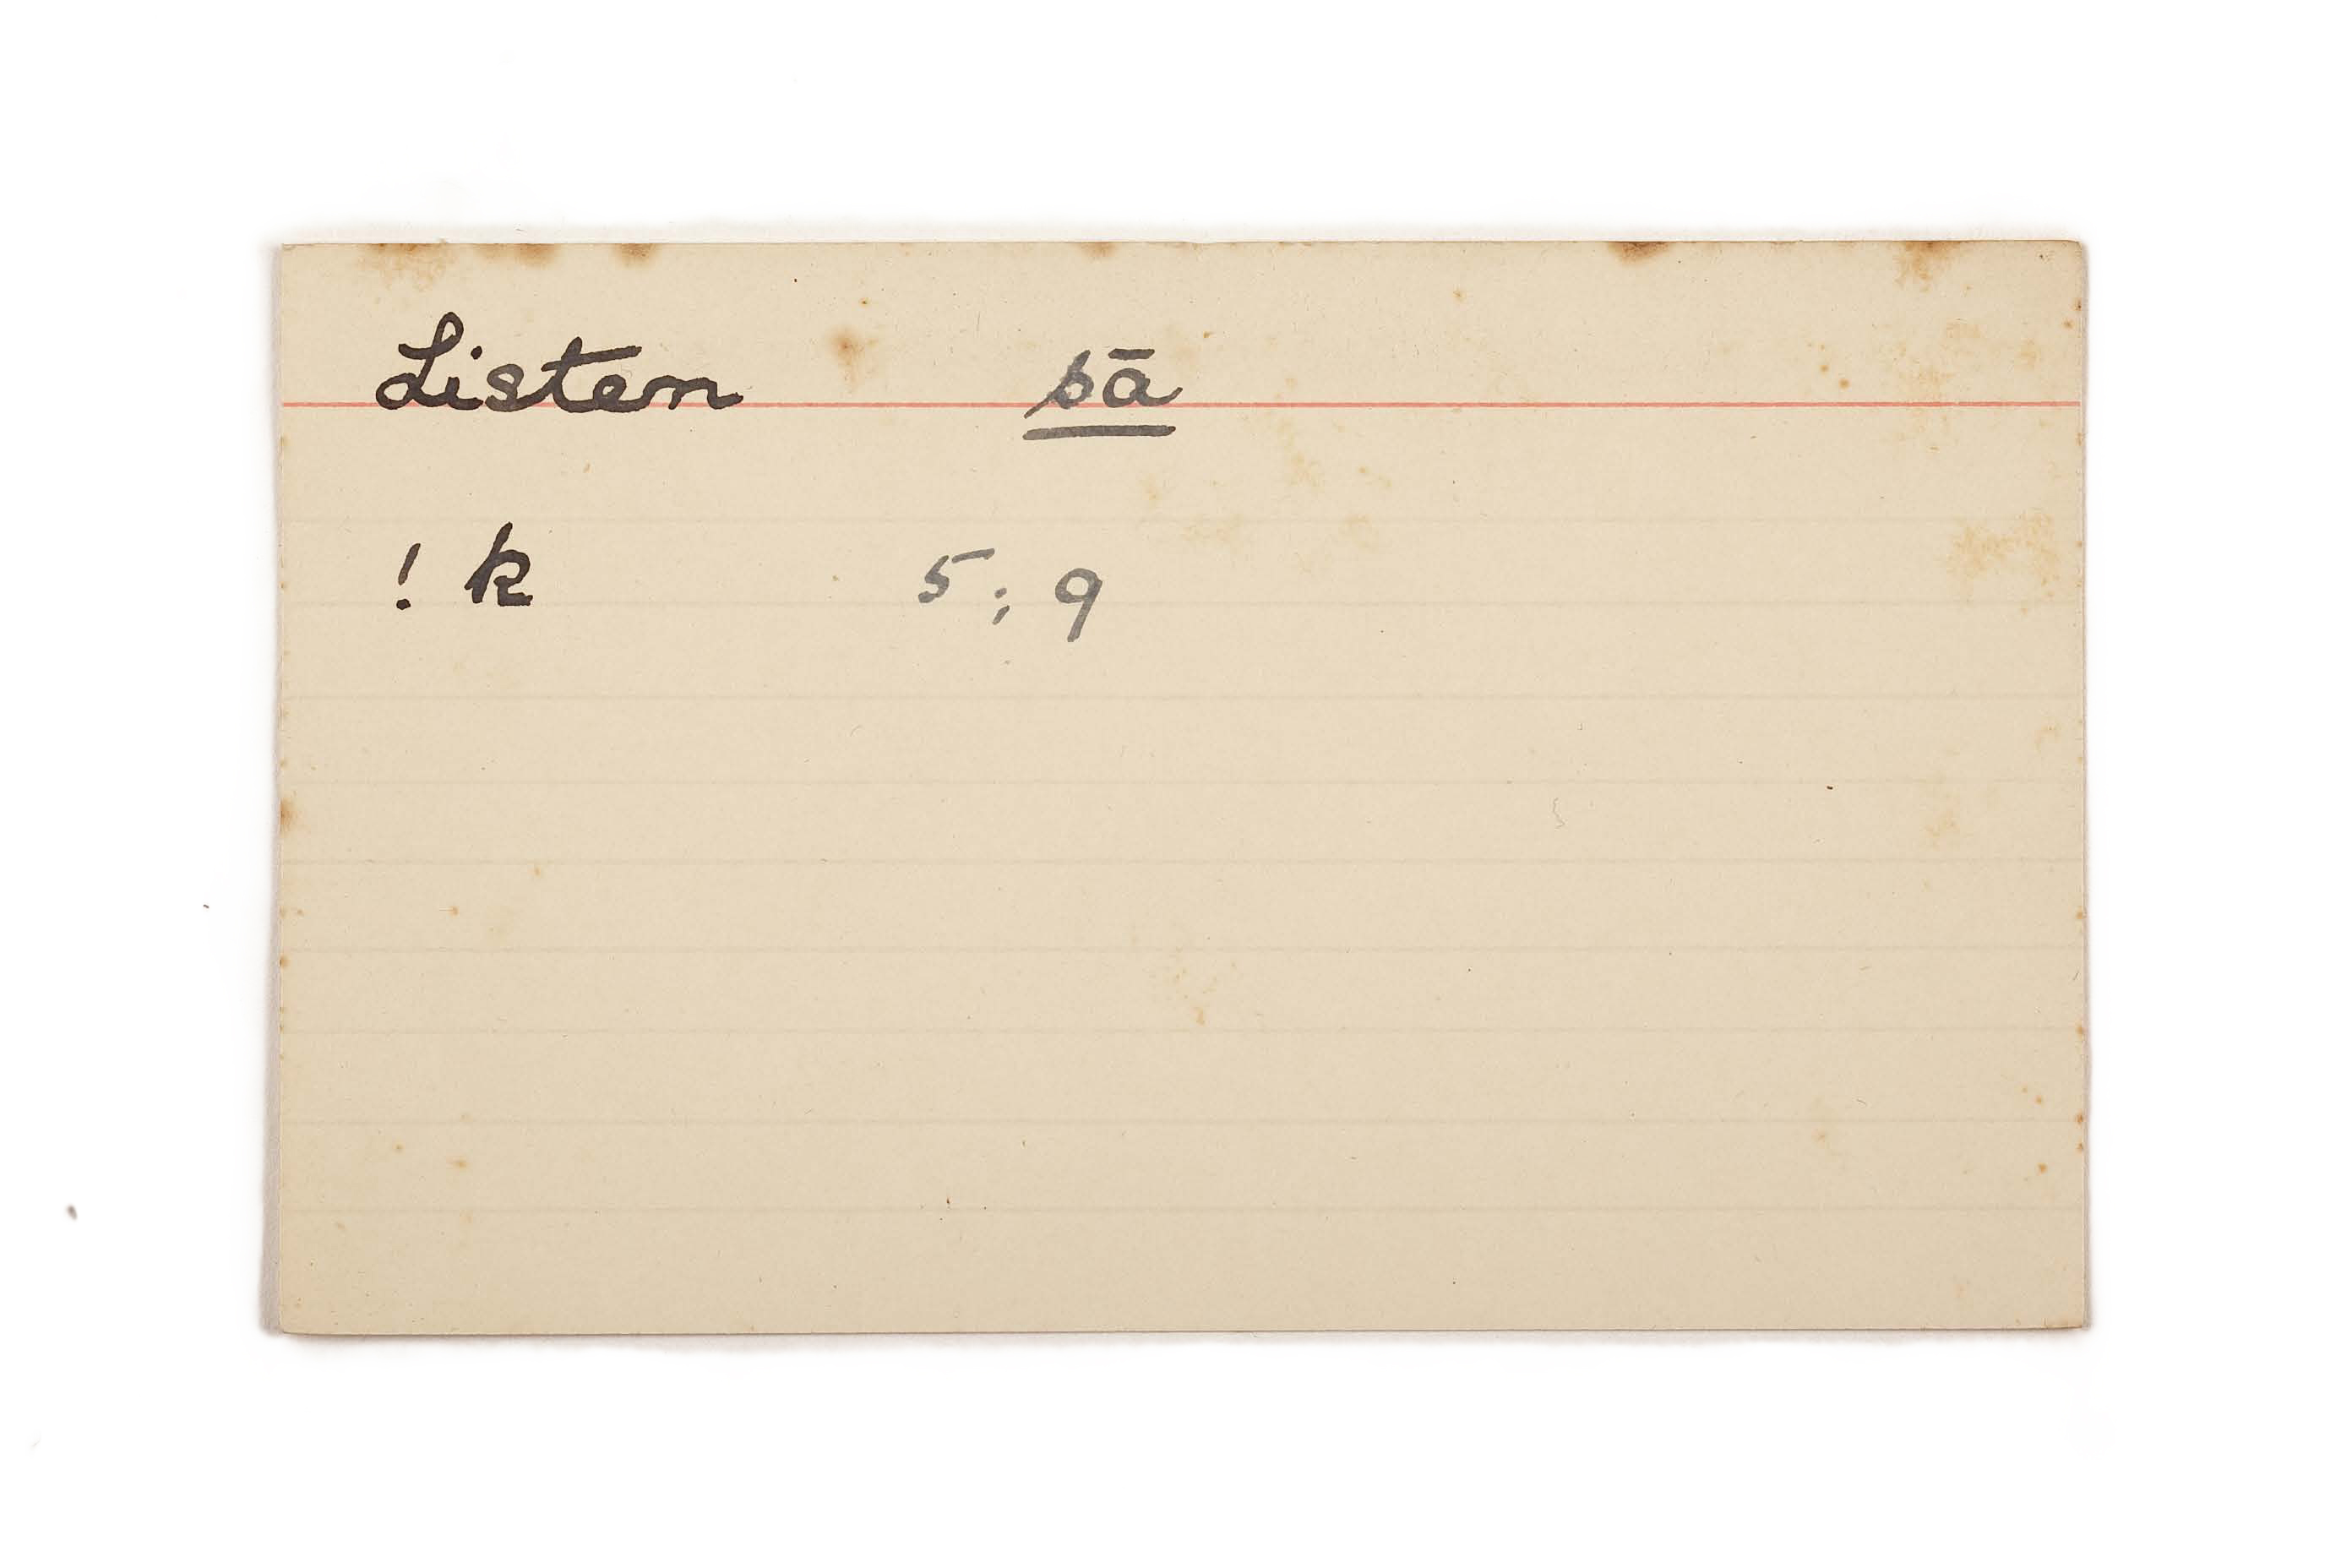 Listen sā
! k 5; 9